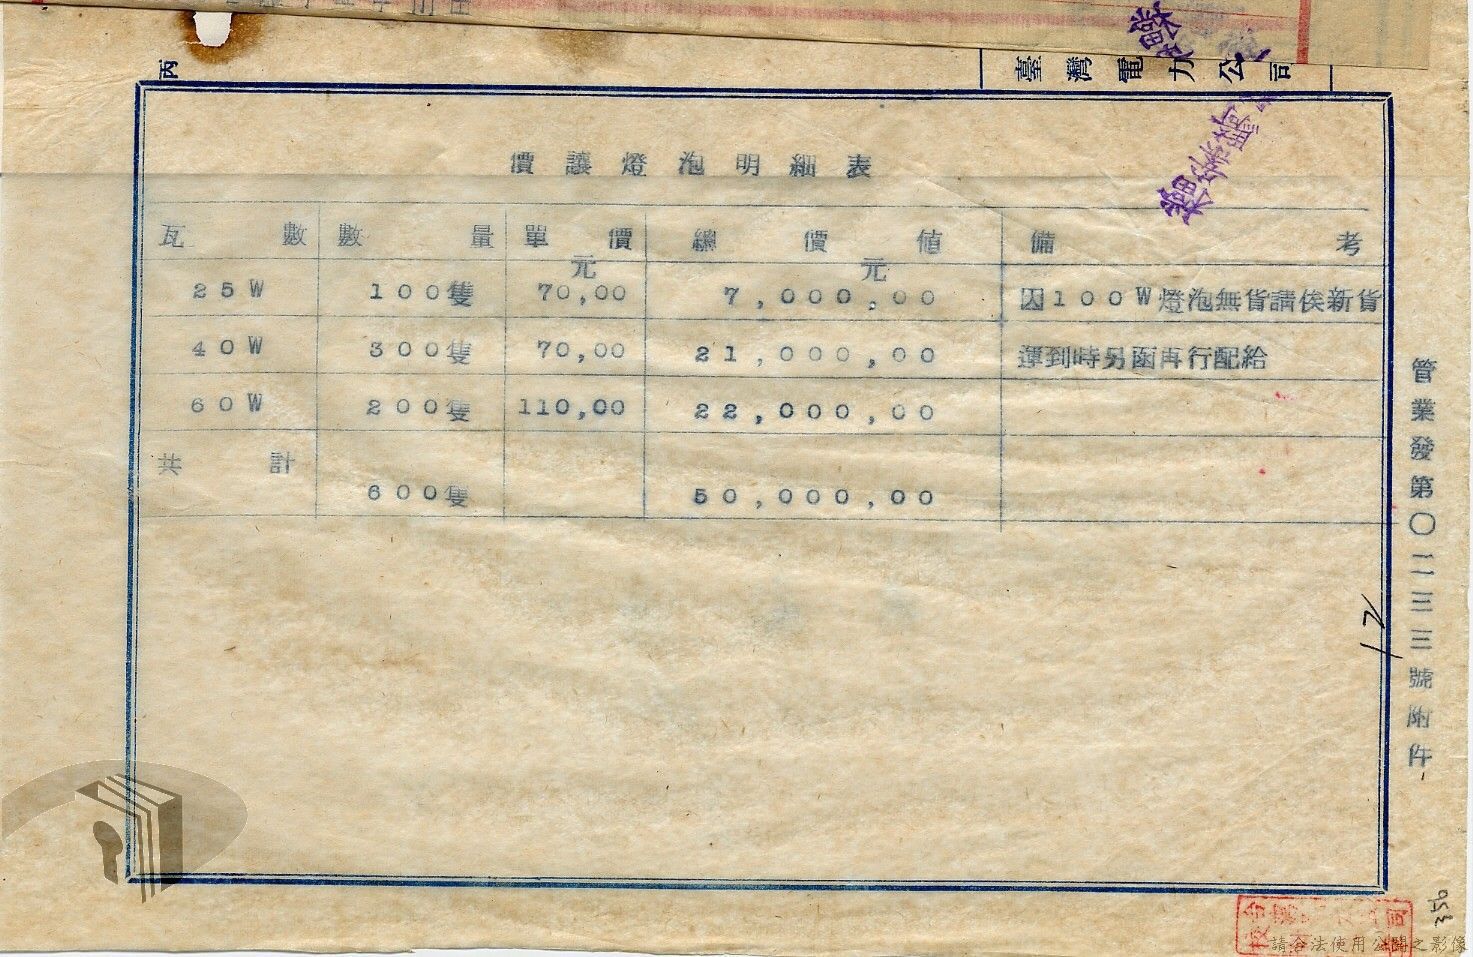 丙
臺灣電力公司
價讓燈泡明細表
瓦數 數量 單價 總價值 備考
元 元
25W 100隻 70,00 7,000,00 因100W燈泡無貨請俟新貨
40W 300隻 70,00 21,000,00 運到時另函再行配給
60W 200隻 110,00 22,000,00
共計
600隻 50,000,00
管業發第〇二三三號附件
12
350
請合法使用公開之影像